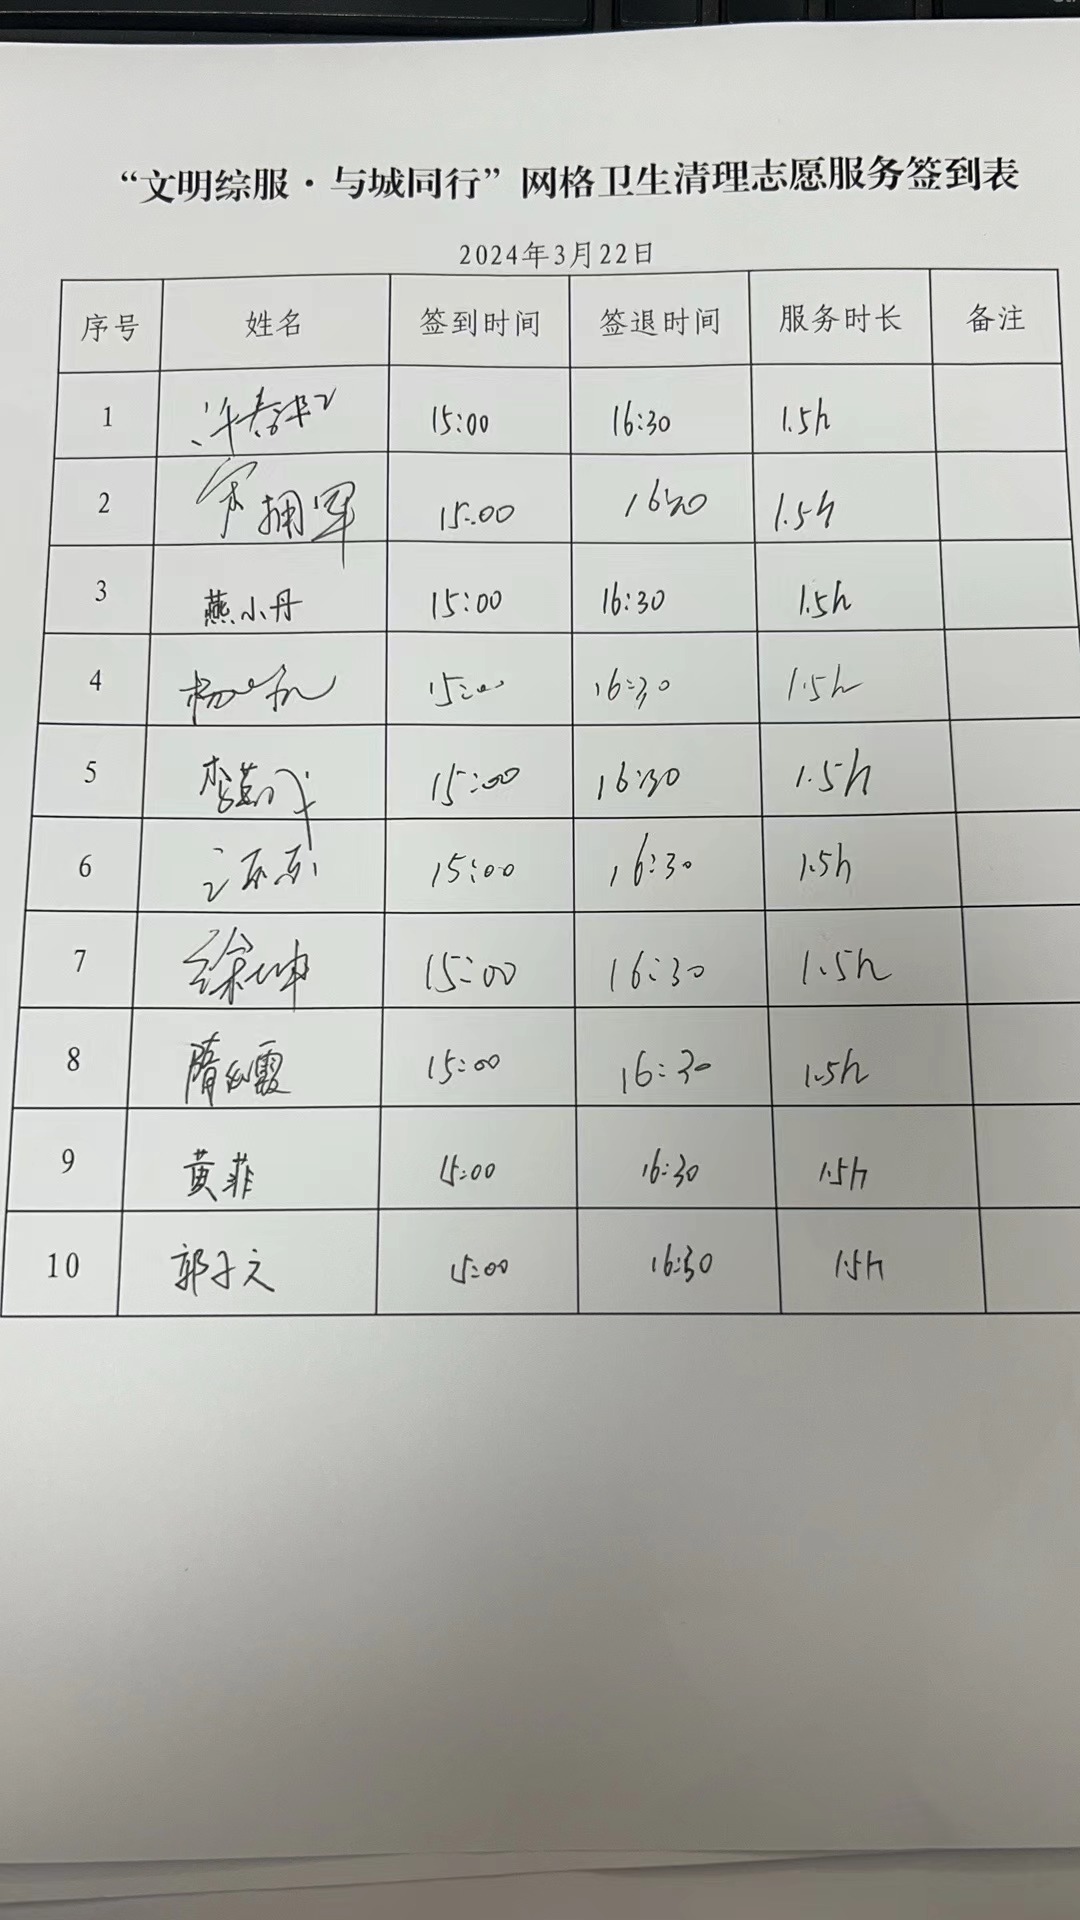 “文明综服·与城同行”网格卫生清理志愿服务签到表
2024年3月22日
序号 姓名 签到时间 签退时间 服务时长 备注
1 15:00 16:30 1.5h
2 宋拥军 15:00 16:30 1.5h
3 燕小丹 15:00 16:30 1.5h
4 15:00 16:30 1.5h
5 15:00 16:30 1.5h
6 15:00 16:30 1.5h
7 徐坤 15:00 16:30 1.5h
8 15:00 16:30 1.5h
9 黄菲 15:00 16:30 1.5h
10 郭子文 15:00 16:30 1.5h